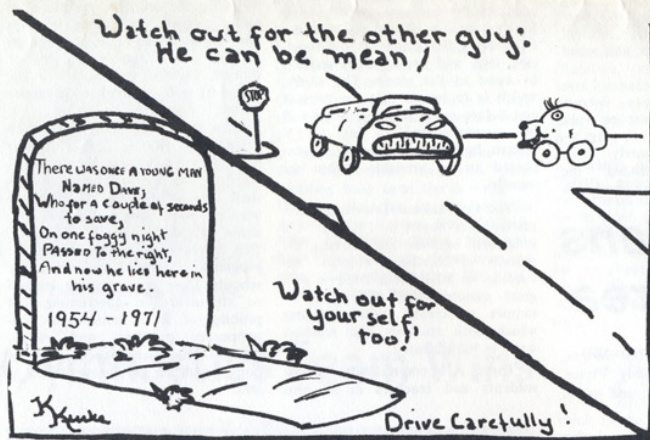 Watch out for the other guy:
He can be mean!
STOP
There was once a young man
Named Dave,
Who for a couple of seconds
to save,
On one foggy night
Passed to the right,
And now he lies here in
his grave.
1954-1971
Watch out for
your self
too!
Drive Carefully!